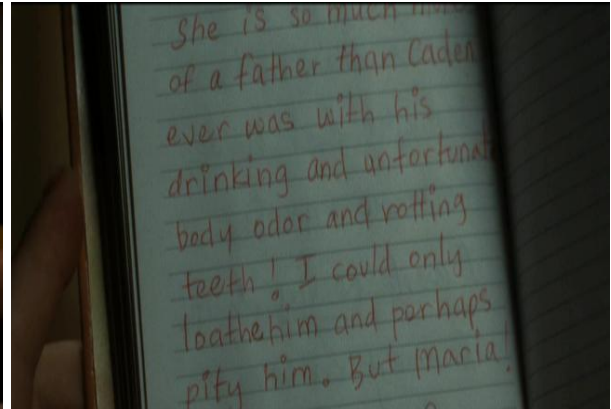 She is so much more
of a father than Caden
ever was with his
drinking and unfortunat
body odor and rotting
teeth! I could only
loathe him and perhaps
pity him. But Maria!